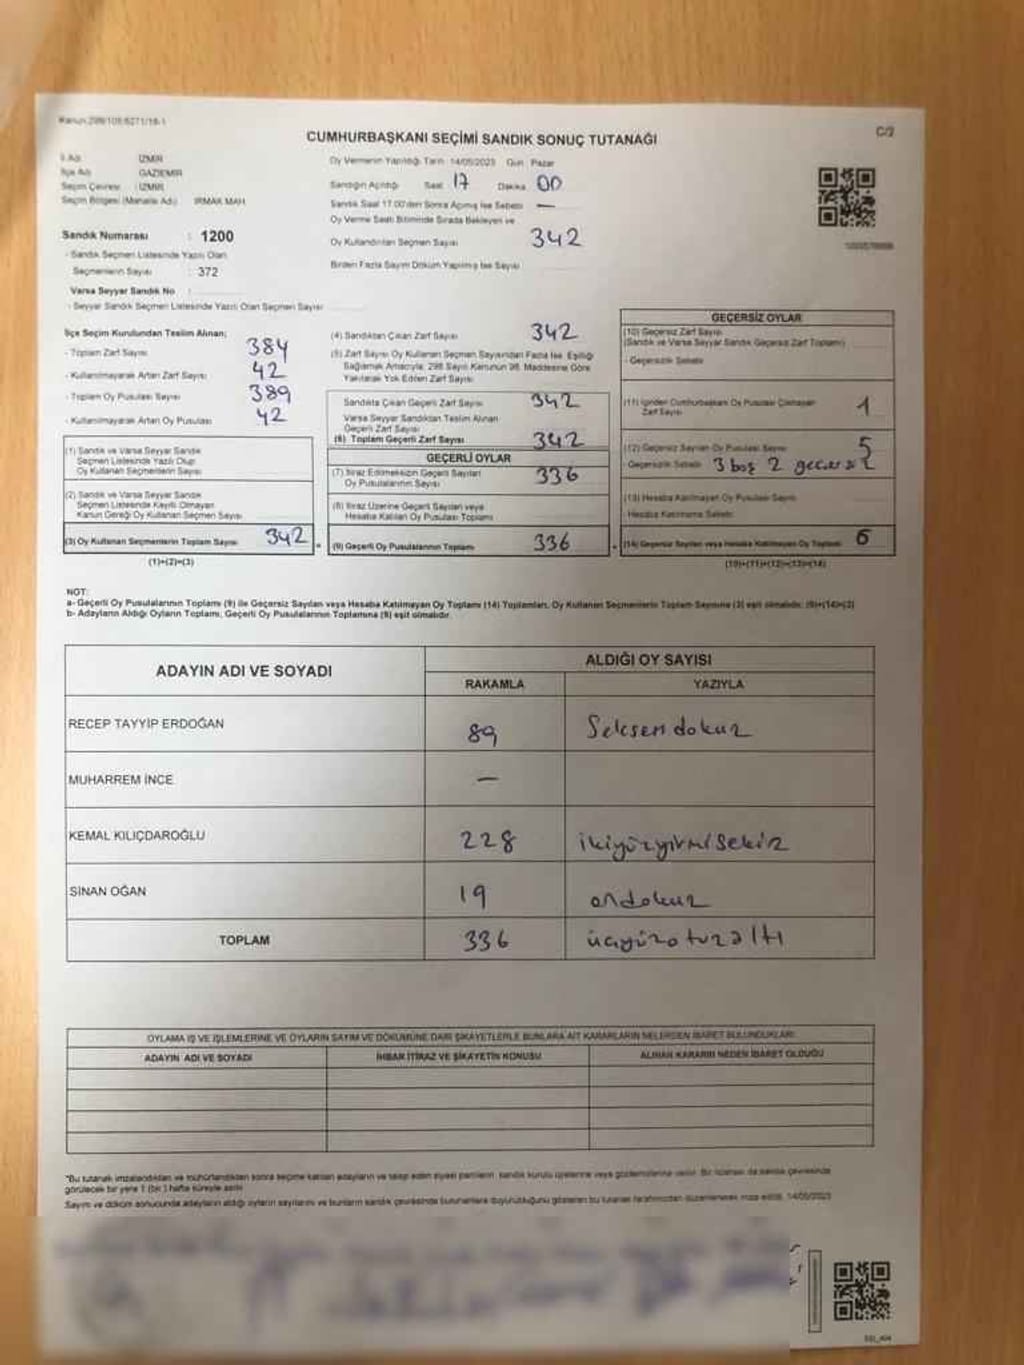 Kanun:298/105;6271/18-1
C/2
CUMHURBAŞKANI SEÇİMİ SANDIK SONUÇ TUTANAĞI
İl Adı İZMİR
İlçe Adı GAZİEMİR
Seçim Çevresi : İZMİR
Seçim Bölgesi (Mahalle Adı) IRMAK MAH.
Sandık Numarası : 1200
- Sandık Seçmen Listesinde Yazılı Olan
Seçmenlerin Sayısı : 372
Varsa Seyyar Sandık No :
- Seyyar Sandık Seçmen Listesinde Yazılı Olan Seçmen Sayısı
Oy Vermenin Yapıldığı Tarih: 14/05/2023 Gün: Pazar
Sandığın Açıldığı Saat 17 Dakika 00
Sandık Saat 17.00'den Sonra Açılmış İse Sebebi —
Oy Verme Saati Bitiminde Sırada Bekleyen ve
Oy Kullandırılan Seçmen Sayısı 342
Birden Fazla Sayım Döküm Yapılmış İse Sayısı
İlçe Seçim Kurulundan Teslim Alınan;
- Toplam Zarf Sayısı 384
- Kullanılmayarak Artan Zarf Sayısı 42
- Toplam Oy Pusulası Sayısı 389
- Kullanılmayarak Artan Oy Pusulası 42
(1) Sandık ve Varsa Seyyar Sandık
Seçmen Listesinde Yazılı Olup
Oy Kullanan Seçmenlerin Sayısı
(2) Sandık ve Varsa Seyyar Sandık
Seçmen Listesinde Kayıtlı Olmayan
Kanun Gereği Oy Kullanan Seçmen Sayısı
(3) Oy Kullanan Seçmenlerin Toplam Sayısı 342
(1)+(2)=(3)
(4) Sandıktan Çıkan Zarf Sayısı 342
(5) Zarf Sayısı Oy Kullanan Seçmen Sayısından Fazla İse, Eşitliği
Sağlamak Amacıyla, 298 Sayılı Kanunun 98. Maddesine Göre
Yakılarak Yok Edilen Zarf Sayısı
Sandıkta Çıkan Geçerli Zarf Sayısı 342
Varsa Seyyar Sandıktan Teslim Alınan
Geçerli Zarf Sayısı
(6) Toplam Geçerli Zarf Sayısı 342
GEÇERLİ OYLAR
(7) İtiraz Edilmeksizin Geçerli Sayılan
Oy Pusulalarının Sayısı 336
(8) İtiraz Üzerine Geçerli Sayılan veya
Hesaba Katılan Oy Pusulası Toplamı
(9) Geçerli Oy Pusulalarının Toplamı 336
GEÇERSİZ OYLAR
(10) Geçersiz Zarf Sayısı
(Sandık ve Varsa Seyyar Sandık Geçersiz Zarf Toplamı)
- Geçersizlik Sebebi
(11) İçinden Cumhurbaşkanı Oy Pusulası Çıkmayan
Zarf Sayısı 1
(12) Geçersiz Sayılan Oy Pusulası Sayısı 5
Geçersizlik Sebebi 3 boş 2 geçersiz
(13) Hesaba Katılmayan Oy Pusulası Sayısı
- Hesaba Katılmama Sebebi
(14) Geçersiz Sayılan veya Hesaba Katılmayan Oy Toplamı 6
(10)+(11)+(12)+(13)=(14)
NOT:
a- Geçerli Oy Pusulalarının Toplamı (9) ile Geçersiz Sayılan veya Hesaba Katılmayan Oy Toplamı (14) Toplamları, Oy Kullanan Seçmenlerin Toplam Sayısına (3) eşit olmalıdır. (9)+(14)=(3)
b- Adayların Aldığı Oyların Toplamı, Geçerli Oy Pusulalarının Toplamına (9) eşit olmalıdır.
ADAYIN ADI VE SOYADI
ALDIĞI OY SAYISI
RAKAMLA YAZIYLA
RECEP TAYYİP ERDOĞAN 89 Seksen dokuz
MUHARREM İNCE —
KEMAL KILIÇDAROĞLU 228 ikiyüzyirmisekiz
SİNAN OĞAN 19 ondokuz
TOPLAM 336 üçyüzotuzaltı
OYLAMA İŞ VE İŞLEMLERİNE VE OYLARIN SAYIM VE DÖKÜMÜNE DAİR ŞİKAYETLERLE BUNLARA AİT KARARLARIN NELERDEN İBARET BULUNDUKLARI
ADAYIN ADI VE SOYADI İHBAR İTİRAZ VE ŞİKAYETİN KONUSU ALINAN KARARIN NEDEN İBARET OLDUĞU
*Bu tutanak imzalandıktan ve mühürlendikten sonra seçime katılan adayların ve talep eden siyasi partilerin sandık kurulu üyelerine veya gözlemcilerine verilir. Bir nüshası da sandık çevresinde
görülecek bir yere 1 (bir) hafta süreyle asılır.
Sayım ve döküm sonucunda adayların aldığı oyların sayılarını ve bunların sandık çevresinde bulunanlara duyurulduğunu gösteren bu tutanak tarafımızdan düzenlenerek imza edildi. 14/05/2023